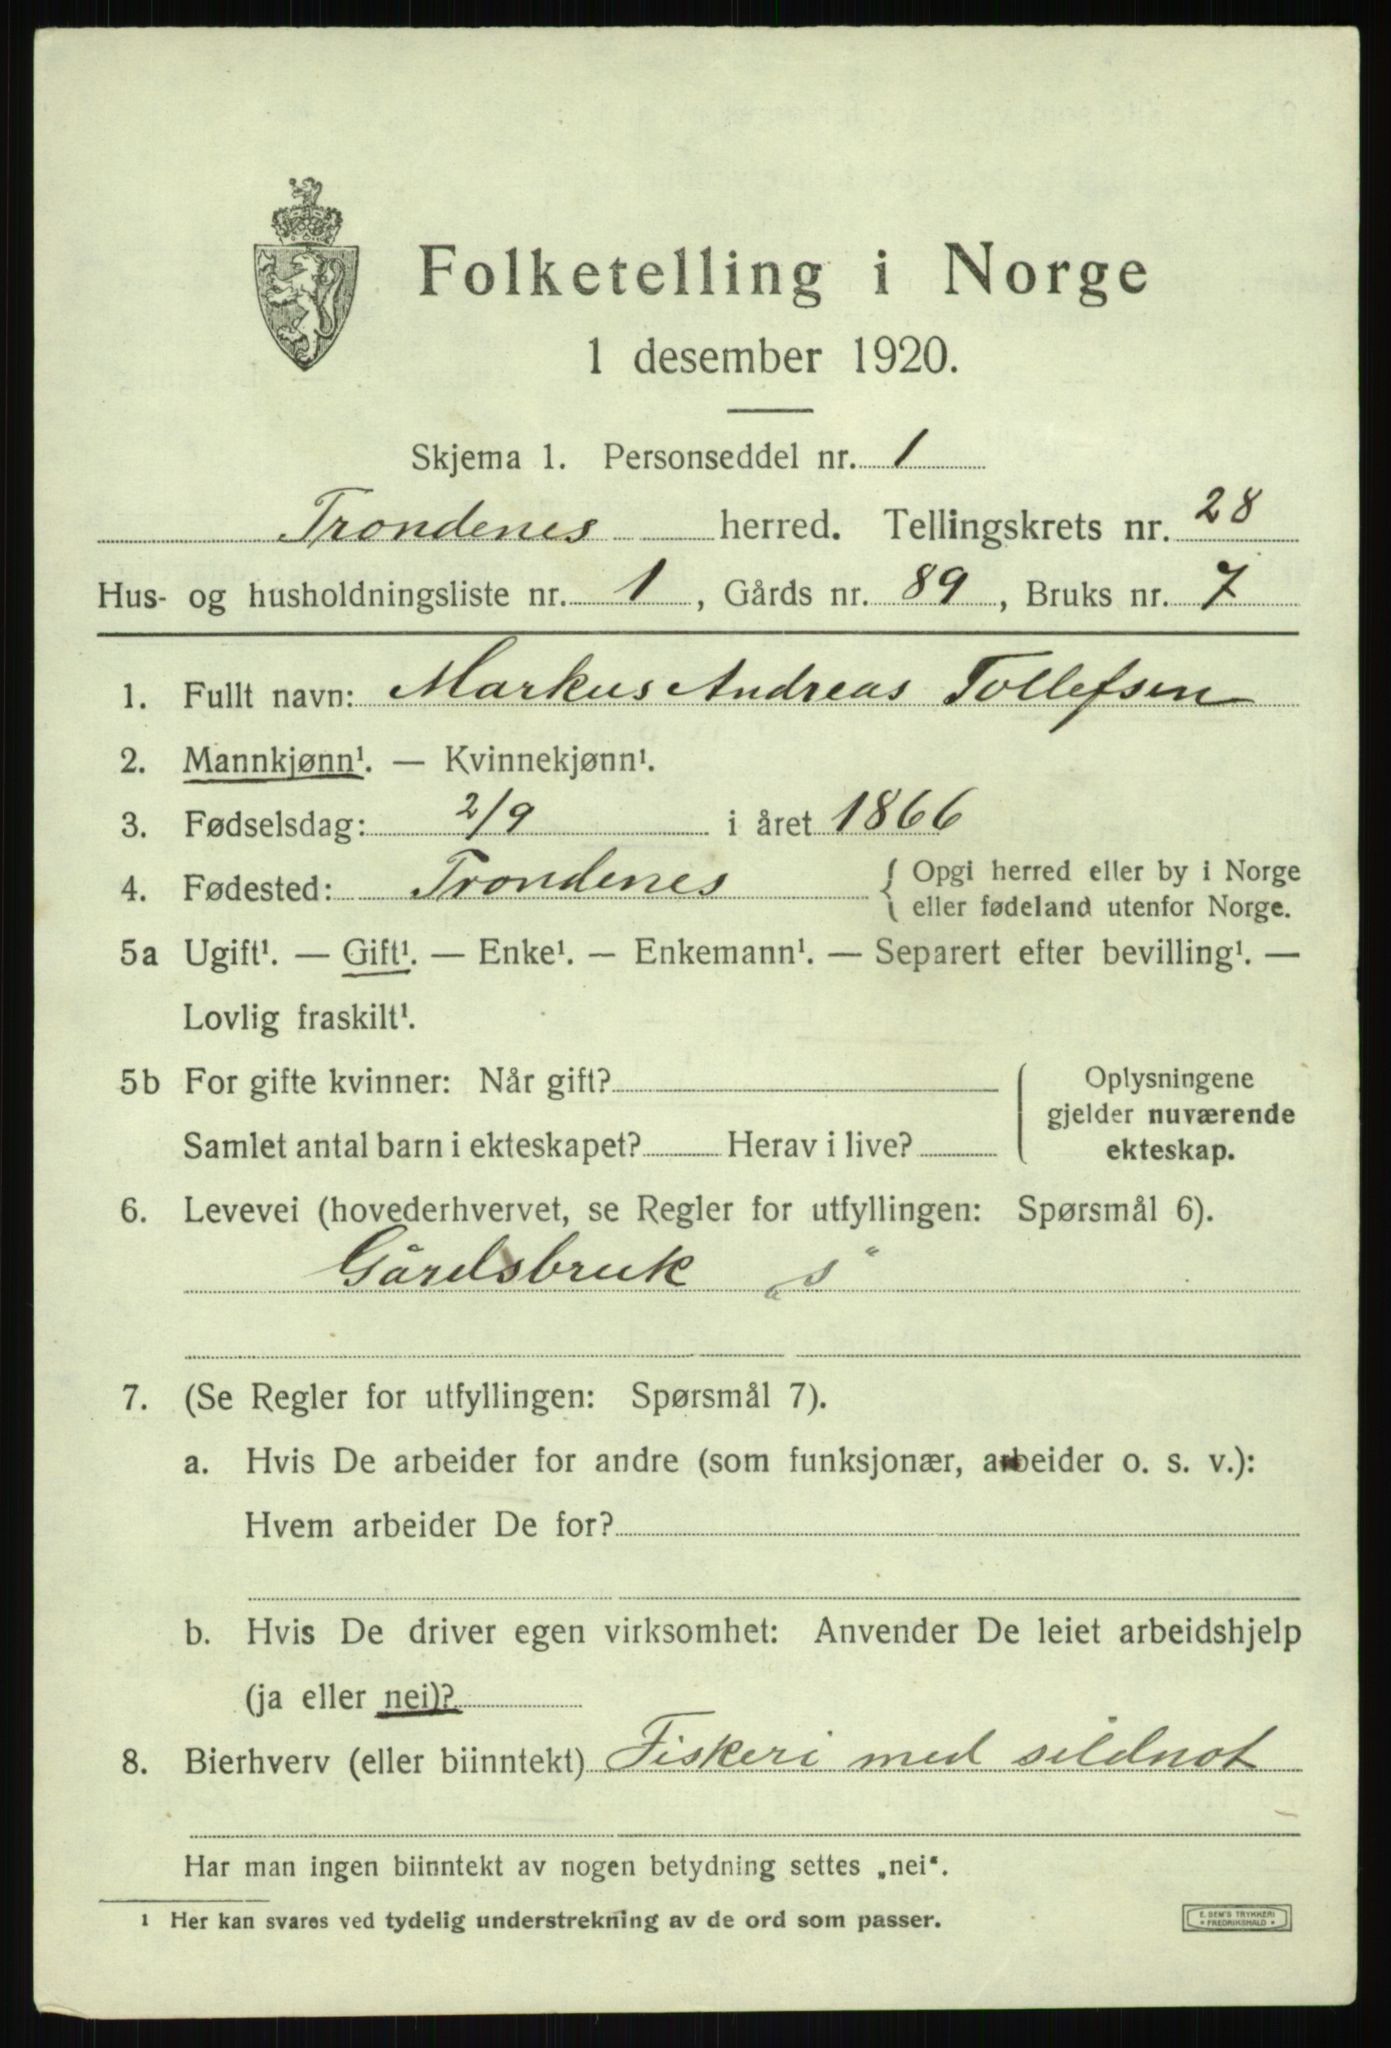 Folketelling i Norge
1 desember 1920.
Skjema 1. Personseddel nr. 1
Trondenes herred. Tellingskrets nr. 28
Hus- og husholdningsliste nr. 1, Gårds nr. 89, Bruks nr. 7
1. Fullt navn: Markus Andreas Tollefsen
2. Mannkjønn¹. — Kvinnekjønn¹.
3. Fødselsdag: 2/9 i året 1866
4. Fødested: Trondenes { Opgi herred eller by i Norge
eller fødeland utenfor Norge.
5a Ugift¹. — Gift¹. — Enke¹. — Enkemann¹. — Separert efter bevilling¹. —
Lovlig fraskilt¹.
5b For gifte kvinner: Når gift?
Samlet antal barn i ekteskapet? Herav i live?
Oplysningene
gjelder nuværende
ekteskap.
6. Levevei (hovederhvervet, se Regler for utfyllingen: Spørsmål 6).
Gårdsbruk „s“
7. (Se Regler for utfyllingen: Spørsmål 7).
a. Hvis De arbeider for andre (som funksjonær, arbeider o. s. v.):
Hvem arbeider De for?
b. Hvis De driver egen virksomhet: Anvender De leiet arbeidshjelp
(ja eller nei)?
8. Bierhverv (eller biinntekt) Fiskeri med sildnot
Har man ingen biinntekt av nogen betydning settes „nei“.
1 Her kan svares ved tydelig understrekning av de ord som passer.
E. SEM'S TRYKKERI
* FREDRIKSHALD *